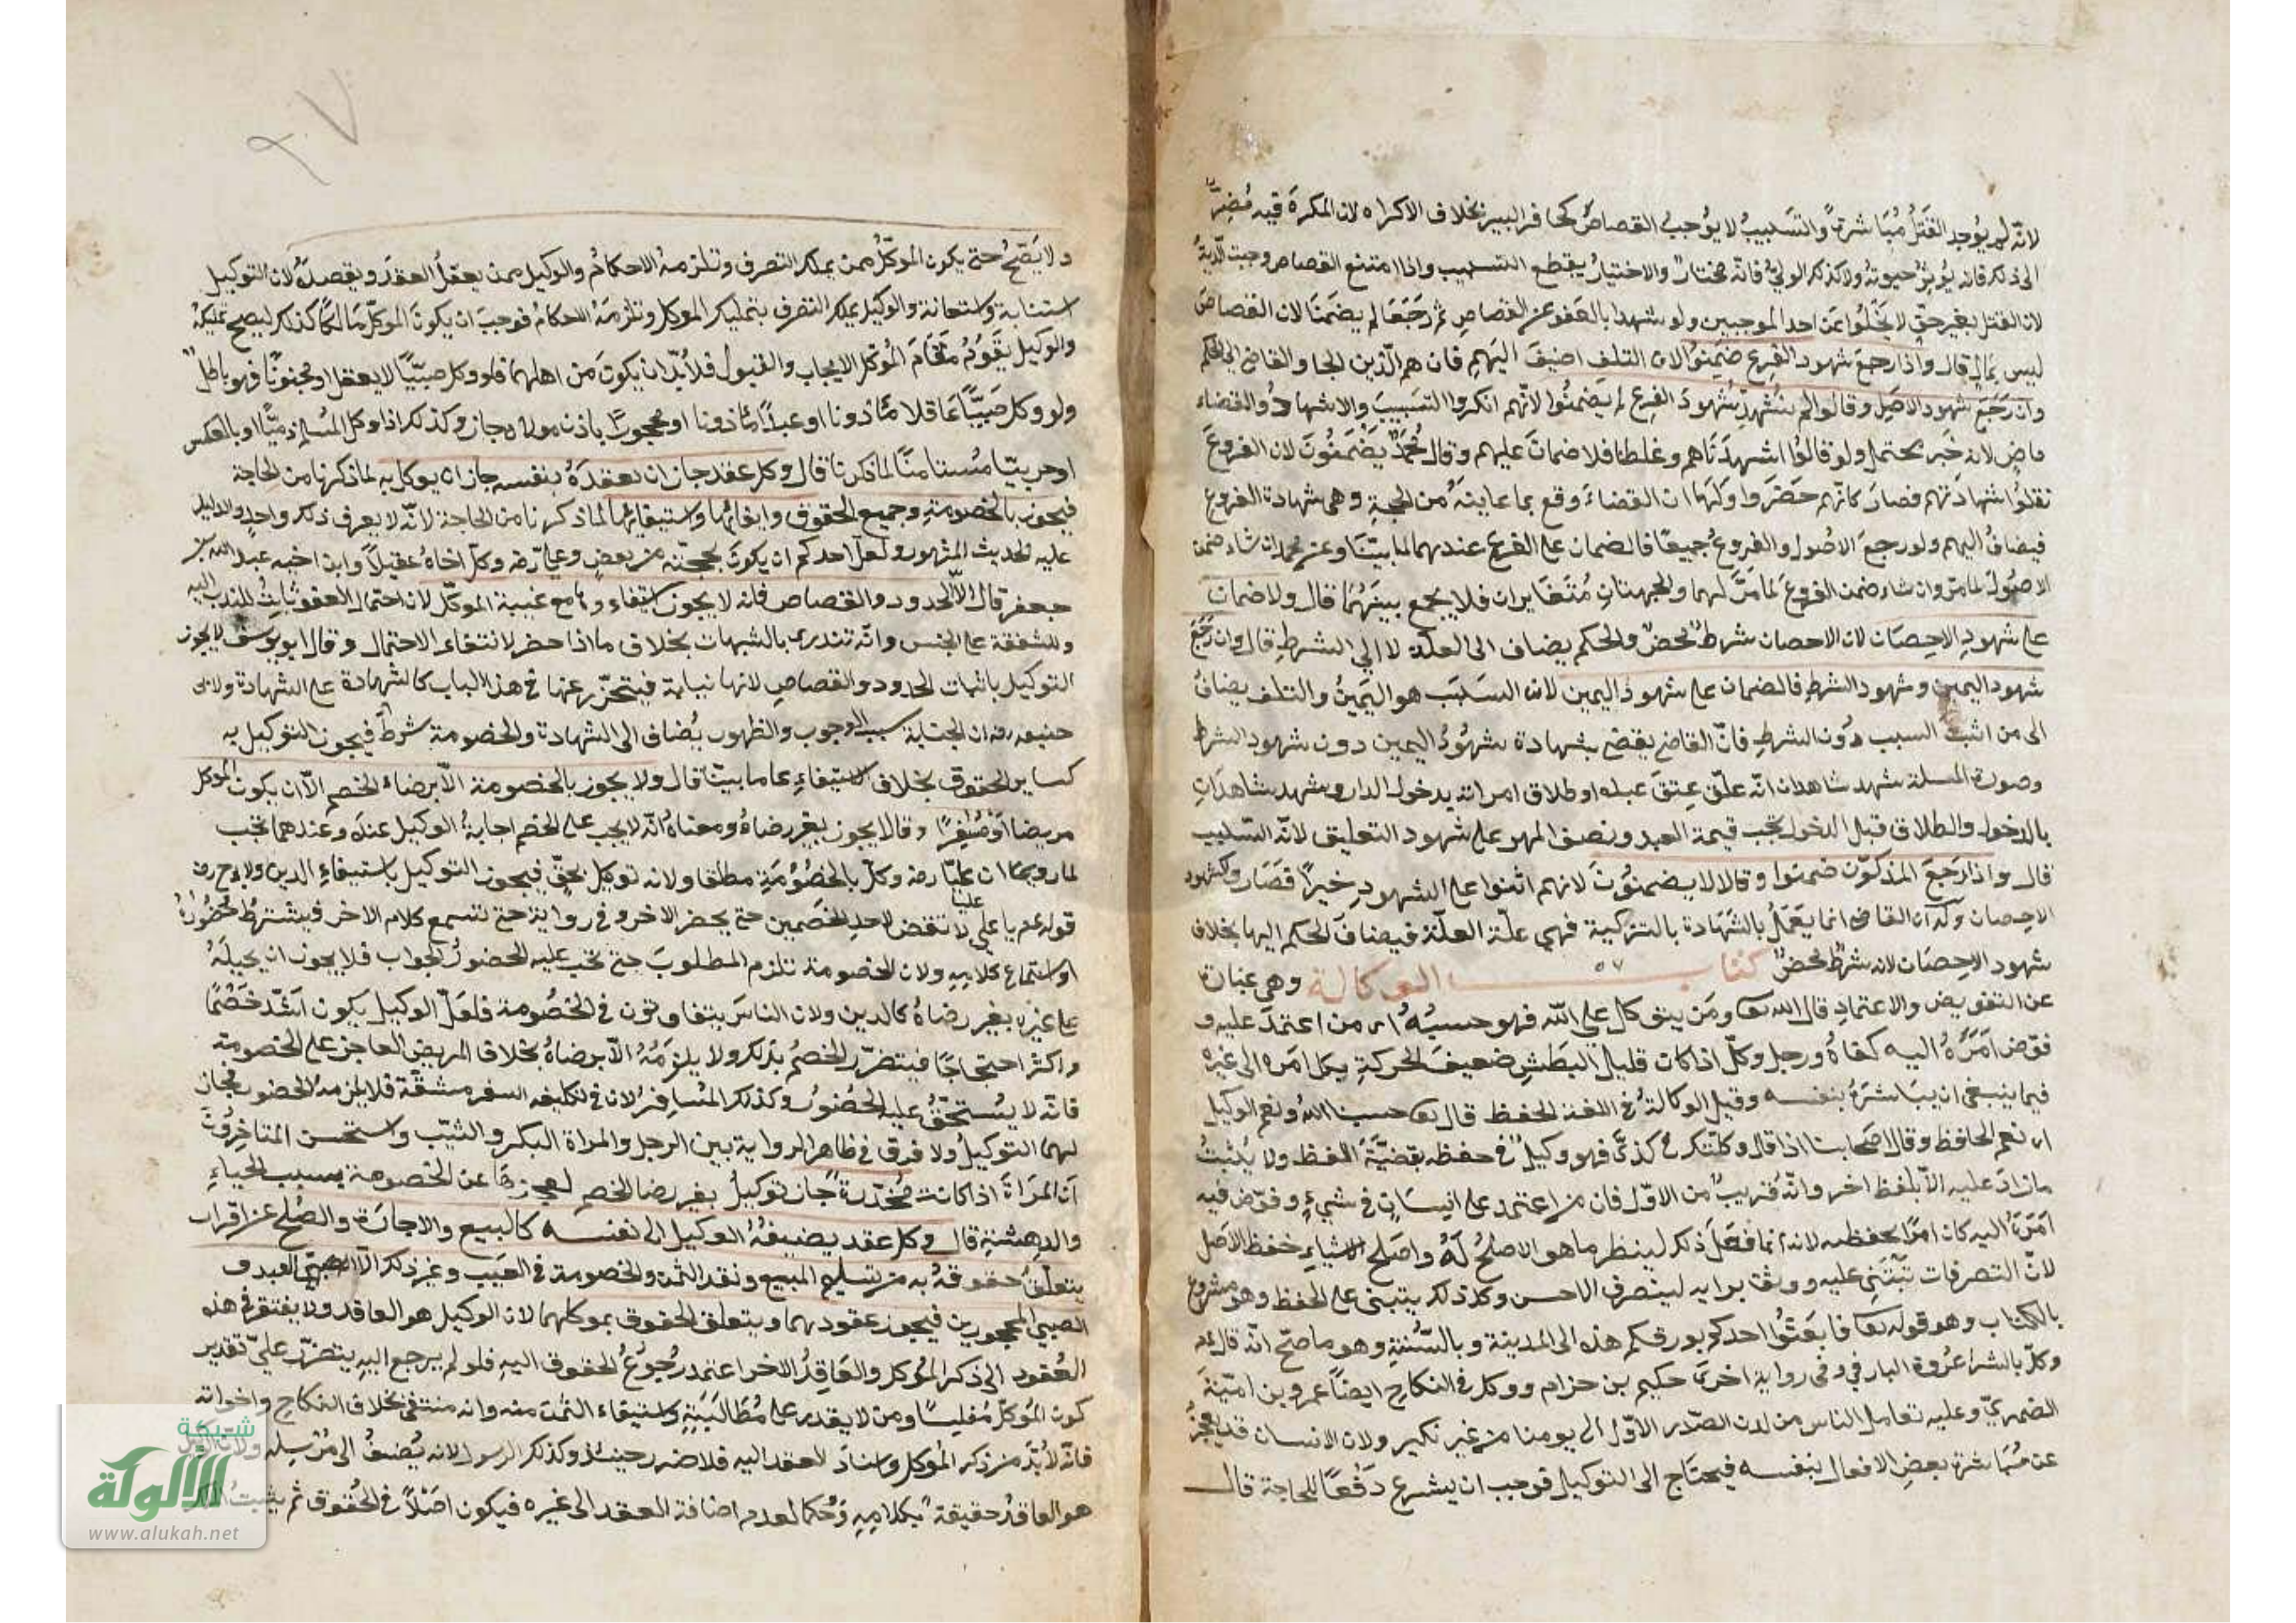 لانّه لم يُوجد القَتلُ مُبَاشرةً والتَسْبيبُ لا يُوجبُ القصاصَ كحافر البير بخلاف الاكراه لان المكرهَ فيه مُضِرٌّ
الى ذلك فانه يُوثِرُ حيوته ولا كذلك الوليّ فانّه مختارٌ والاختيارُ يقطع التسبيب واذا امتنع القصاص وجبت الدّيةُ
لان القتل بغير حقٍّ لا يَخْلُوا عَن احد الموجبين ولو شهدا بالعَفو عن القصاصِ ثم رَجَعَا لم يضمَنَا لان القصاصَ
ليس بمالٍ قال واذا رجع شهود الفَرع ضَمِنُوا لان التلف اضيفَ اليهم فان هم الّذين الجاوا القاضي الى الحكم
وان رَجَعَ شهود الاصل وقالوا لم نُشْهِد شُهُودَ الفرع لم يَضمنُوا لانّهم انكروا التسبيبَ والاشهادُ والقضاء
ماضٍ لانه خَبر محتمل ولو قالُوا اشهدنَاهم وغلطنا فلا ضمانَ عليهم وقال مُحَمّدٌ يَضْمَنُونَ لان الفروعَ
نقلُوا شهادتهم فصارَ كانّهم حَضَروا ولَهُمَا ان القضاءَ وقع بما عاينهُ من الحجةِ وهى شهادة الفروع
فيضافُ اليهم ولو رجعَ الاصُول والفروعُ جميعًا فالضمان على الفرع عندهما لما بيّنا وعن محمد ان شاء ضمن
الاصُولَ لما مرّ وان شاء ضمن الفروعَ لما مرَّ لهما والجهتانِ مُتَغَايران فلا يُجمع بينَهُمَا قال ولا ضمان
على شهودِ الاحِصَان لان الاحصان شرطٌ محضٌ والحكم يضاف الى العلّة لا الى الشرطِ قال وان رَجَعَ
شهود اليمين وشهود الشرطِ فالضمان على شهود اليمين لان السَبَبَ هو اليَمينُ والتلف يضافُ
الى من اثبتَ السبب دُون الشرطِ فانّ القاضي يقضي بشهادة شهُودُ اليمين دون شهود الشرط
وصورة المسلة شهد شاهدان انّه علّق عِتقَ عبده او طلاق امراته بدخول الدار وشهد شاهدانِ
بالدخول والطلاق قبل الدخول يجب قيمة العبد ونصف المهر على شهود التعليق لانّه التسبيب
قال واذا رَجَعَ المذكّون ضمنوا وقالا لا يضمنُونَ لانهم اثنوا على الشهودِ خيراً فصَار وكشهود
الاحِصان وله ان القاضى انما يَعمَلُ بالشَهَادة بالتزكية فهي علّة العلّة فيضافَ الحكم اليها بخلاف
شهود الاحِصَان لانه شرطٌ محضٌ كتاب الوكالة وهى عبارة
عن التفويض والاعتمادِ قال الله تعا ومَن يتوكل على الله فهو حسبُهُ اى من اعتمدَ عليه و
فوّض اَمْرَهُ اليه كفاهُ ورجل وكلٌ اذا كان قليل البَطشِ ضعيفَ الحركةِ يكل امَره الى غيره
فيما ينبغى ان يبَاشرَهُ بنفسه وقيل الوكالةُ فى اللغة الحفظ قال تعا حسبنا اللهُ ونعم الوكيل
اى نعم الحافظ وقال اصَحابنا اذا قال وكلّتك فى كذى فهو وكيلٌ فى حفظه بقضيّةَ اللفظ ولا يُثبتُ
مازادَ عليه الاّ بلفظ اخر وانّه قَريبٌ من الاوّل فان من اعتمد على انسانٍ فى شيءٍ وفوّض فيه
امَرَهُ اليه كان امرًا بحفظه لانه انما فعَلَ ذلك لينظر ماهو الاصلحُ لَهُ واصَلح الاشياءِ حفظ الاَصل
لانّ التصرفات تَبْتَنى عليه ووثق برايه ليتصرف الاحسن وكذلك يبتنى على الحفظ وهو مشروع
بالكتاب وهو قوله تعا فابعَثُوا احدكم بورقكم هذه الى المدينة وبالسُّنةِ وهو ما صحّ انّه قال عم
وكلّ بالشرا عُروة البارقى وفى رواية اخرى حكيم بن حزام ووكل فى النكاحِ ايضاً عمرو بن اميّةَ
الضمريّ وعليه تعامل الناس من لدن الصّدر الاوّل الى يومنا من غير نكير ولان الانسان قد يعجزُ
عن مُبَاشرة بعضِ الافعال بنفسه فيحتَاج الى التوكيل فوجب ان يشرع دَفْعاً للحاجة قال
ولا يَصّحُ حتى يكون الموكّلُ ممن يملك التصرف وتلزمهُ الاحكامُ والوكيل ممن يعقلُ العقدَ ويقصدهُ لان التوكيل
استنابة واستعانة والوكيل يملك التصرف بتمليك الموكل وتلزمَهُ الاحكامُ فوجبَ ان يكونَ الموكلُ مَالكًا كذلك ليصح تمليكهُ
والوكيل يقَومُ مقامَ المُوَكل الايجاب والقبول فلا بُدّ ان يكونَ مَن اهلهمَا فلو وكل صبّيًا لا يعقل او مجنونًا فهو باطلٌ
ولو وكل صَبيّاً عَاقلا ماذونا او عبداً ماذونا او محجورًا باذن مولاه جاز وكذلك اذا وكل المُسلم ذميًّا او بالعكس
او حربيّا مُستامنًا لما ذكرنا قال وكل عقد جاز ان يعقدَهُ بنفسه جاز ان يوكل به لما ذكرنا من الحاجة
فيجوز بالخصومةِ وجميع الحقوق وايفائها واستيفائها لما ذكرنا من الحاجة لانّه لا يعرف ذلك واحدٍ والدليل
عليه الحديث المشهور ولعل احدكم ان يكونَ بحجّته من بعض وعلىّ رضه وكلّ اخاهُ عقيلاً وابن اخيه عبد الله بن
جعفر قال الاّ الحدود والقصاص فانه لا يجوز استيفاءوها مع غيبة الموكّل لان احتمال العفو ثابتٌ للندب اليه
وللشفقة على الجنس وانّه تندرى بالشبهات بخلاف ما اذا حضر لانتفاء الاحتمال وقال ابو يوسف لا يجوز
التوكيل باثبات الحدود والقصاصِ لانها نيابة فيتحرّز عنها فى هذا الباب كالشهادة على الشهادة ولابى
حنيفه رضه ان الجناية سبب الوجوب والظهور يُضاف الى الشهادة والخصومة شرطٌ فيجوز التوكيل به
كساير الحقوق بخلاف الاستيفاءِ على ما بيّنا قال ولا يجوز بالخصومة الاّ برضاءِ الخصم الاّ ان يكون الموكل
مريضا او مُسَافرًا وقالا يجوز بغير رضاهُ ومعناهُ انّه لا يجب على الخصم اجابةُ الوكيل عنده وعندهما تجب
لما روى ان عليّا رضه وكلّ بالخصُومَةِ مطلقا ولانه توكيل بحقٍّ فيجوز التوكيل باستيفاءِ الدين ولابى ح رضه
قوله عم يا على لا تقض لاحد الخصَمين حتى يحضر الاخر وفى رواية حتى تسمع كلام الاخر فيشترطُ حُضورُهُ
او استماع كلامِهِ ولان الخصومة تلزم المطلوبَ حتى تجب عليه الحضورُ الجواب فلا يجوز ان يحيلَهُ
على غيرِه بغير رضاهُ كالدين ولان الناسَ يتفاوتون فى الخصُومة فلعَلّ الوكيل يكون اشدّ خَصْمًا
واكثر احتجاجًا فيتضرّر الخصمُ بذلك ولا يلزمُهُ الاّ برضاهُ بخلاف المريض العاجز على الخصومة
فانّه لا يُستحقُّ عليه الحُضُورُ وكذلك المُسَافِرُ لان فى تكليفه السفر مشقّة فلا يلزمهُ الحضور فجاز
لهما التوكيلُ ولا فرق فى ظاهر الرواية بين الرجل والمراة البكر والثيّب واستحسن المتاخِرُونَ
اَنّ المرَاةَ اذا كانت مُخدّرةً جَاز توكيلُ بغير رضا الخصم لعجزهَا عن الخصومة بسبب الحياءِ
والدهشةِ قال وكل عقد يضيفُهُ الوكيل الى نفسه كالبيع والاجارَة والصُلح عن اقرار
يتعلّق حقوقهُ به من تسليم المبيع ونقد الثمن والخصومة فى العَيب وغير ذلك الاّ الصبىّ العبد و
الصبي المحجورين فيجوز عقودهما ويتعلق الحقوق بموكلهما لان الوكيل هو العاقد ولا يفتقر فى هذه
العُقود الى ذكر المُوكل والعَاقِدُ الاخر اعتمد رُجُوعُ الحقوق اليهِ فلو لم يرجع اليهِ يتضرّر علىّ تقدير
كون المُوَكّل مُفلِسًا ومن لا يقدر على مُطَالبَتِهِ واستيفاء الثمن منه وانه منتفى بخلاف النكاح واخواته
فانّه لا بُدّ من ذكر المُوكل واسناد العقد اليه فلا ضرر حينئذ وكذلك الرسول لانه يُضيفُ الى مُرْسِله ولان الوكيل
هو العاقدُ حقيقة بكلامِهِ وحُكما لعدم اضافة العقد الى غيره فيكون اصَلاً فى الحُقوق ثم يثبتُ الملك
شبكة
الألوكة
www.alukah.net